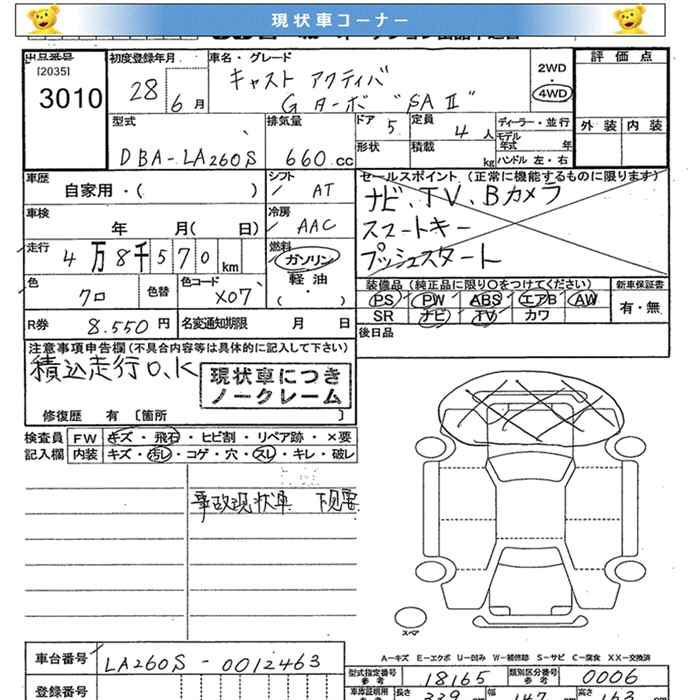 現状車コーナー
出品番号
[2035]
3010
初度登録年月
28 6月
車名・グレード
キャスト アクティバ
Gターボ "SAⅡ"
2WD
・
4WD
評価点
外装 内装
型式
DBA-LA260S
排気量
660.cc
ドア 5
定員 4人
ディーラー・並行
モデル
年式 年
形状
積載 kg
ハンドル 左・右
車歴
自家用・( )
シフト
AT
セールスポイント (正常に機能するものに限ります)
ナビ、TV、Bカメラ
スマートキー
プッシュスタート
車検
年 月( 日)
冷房
AAC
走行
4万8千570km
燃料
ガソリン
軽油
( )
色
クロ
色替
色コード
X07
装備品 (純正品に限り○をつけてください)
PS PW ABS エアB AW
SR ナビ TV カワ
新車保証書
有・無
R券 8.550円
名変通知期限 月 日
後日品
注意事項申告欄(不具合内容等は具体的に記入して下さい)
積込走行O、K
現状車につき
ノークレーム
修復歴 有 〔箇所 〕
検査員
記入欄
FW キズ・飛石・ヒビ割・リペア跡・×要
内装 キズ・汚レ・コゲ・穴・スレ・キレ・破レ
事故現状車 下見要
スペア
A-キズ E-エクボ U-凹み W-補修跡 S-サビ C-腐食 XX-交換済
車台番号
LA260S-0012463
登録番号
型式指定番号
参考
18165
類別区分番号
参考
0006
車庫証明用
参考
長さ 339
幅 147
高さ 163